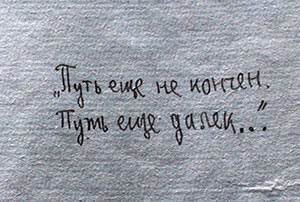 „Путь еще не кончен.
Путь еще далек...“